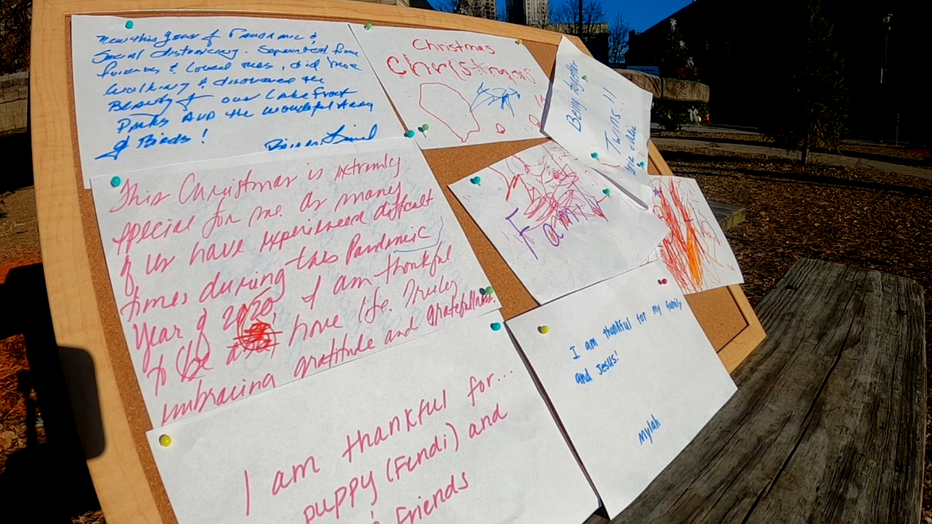 New this year of Pandemic &
Social distancing. Separated from
friends & loved ones, did more
walking & discovered the
Beauty of our Lake Front
Parks And the wonderful Array
of Birds!
Christmas
Christmas
Being together
Twins!!
This Christmas is extremely
special for me. As many
of us have experienced difficult
times during this Pandemic
Year of 2020, I am thankful
to be have life. Truly
embracing gratitude and gratefulness.
I am thankful for my family
and Jesus!
Mylah
I am thankful for...
puppy (Fendi) and
Friends